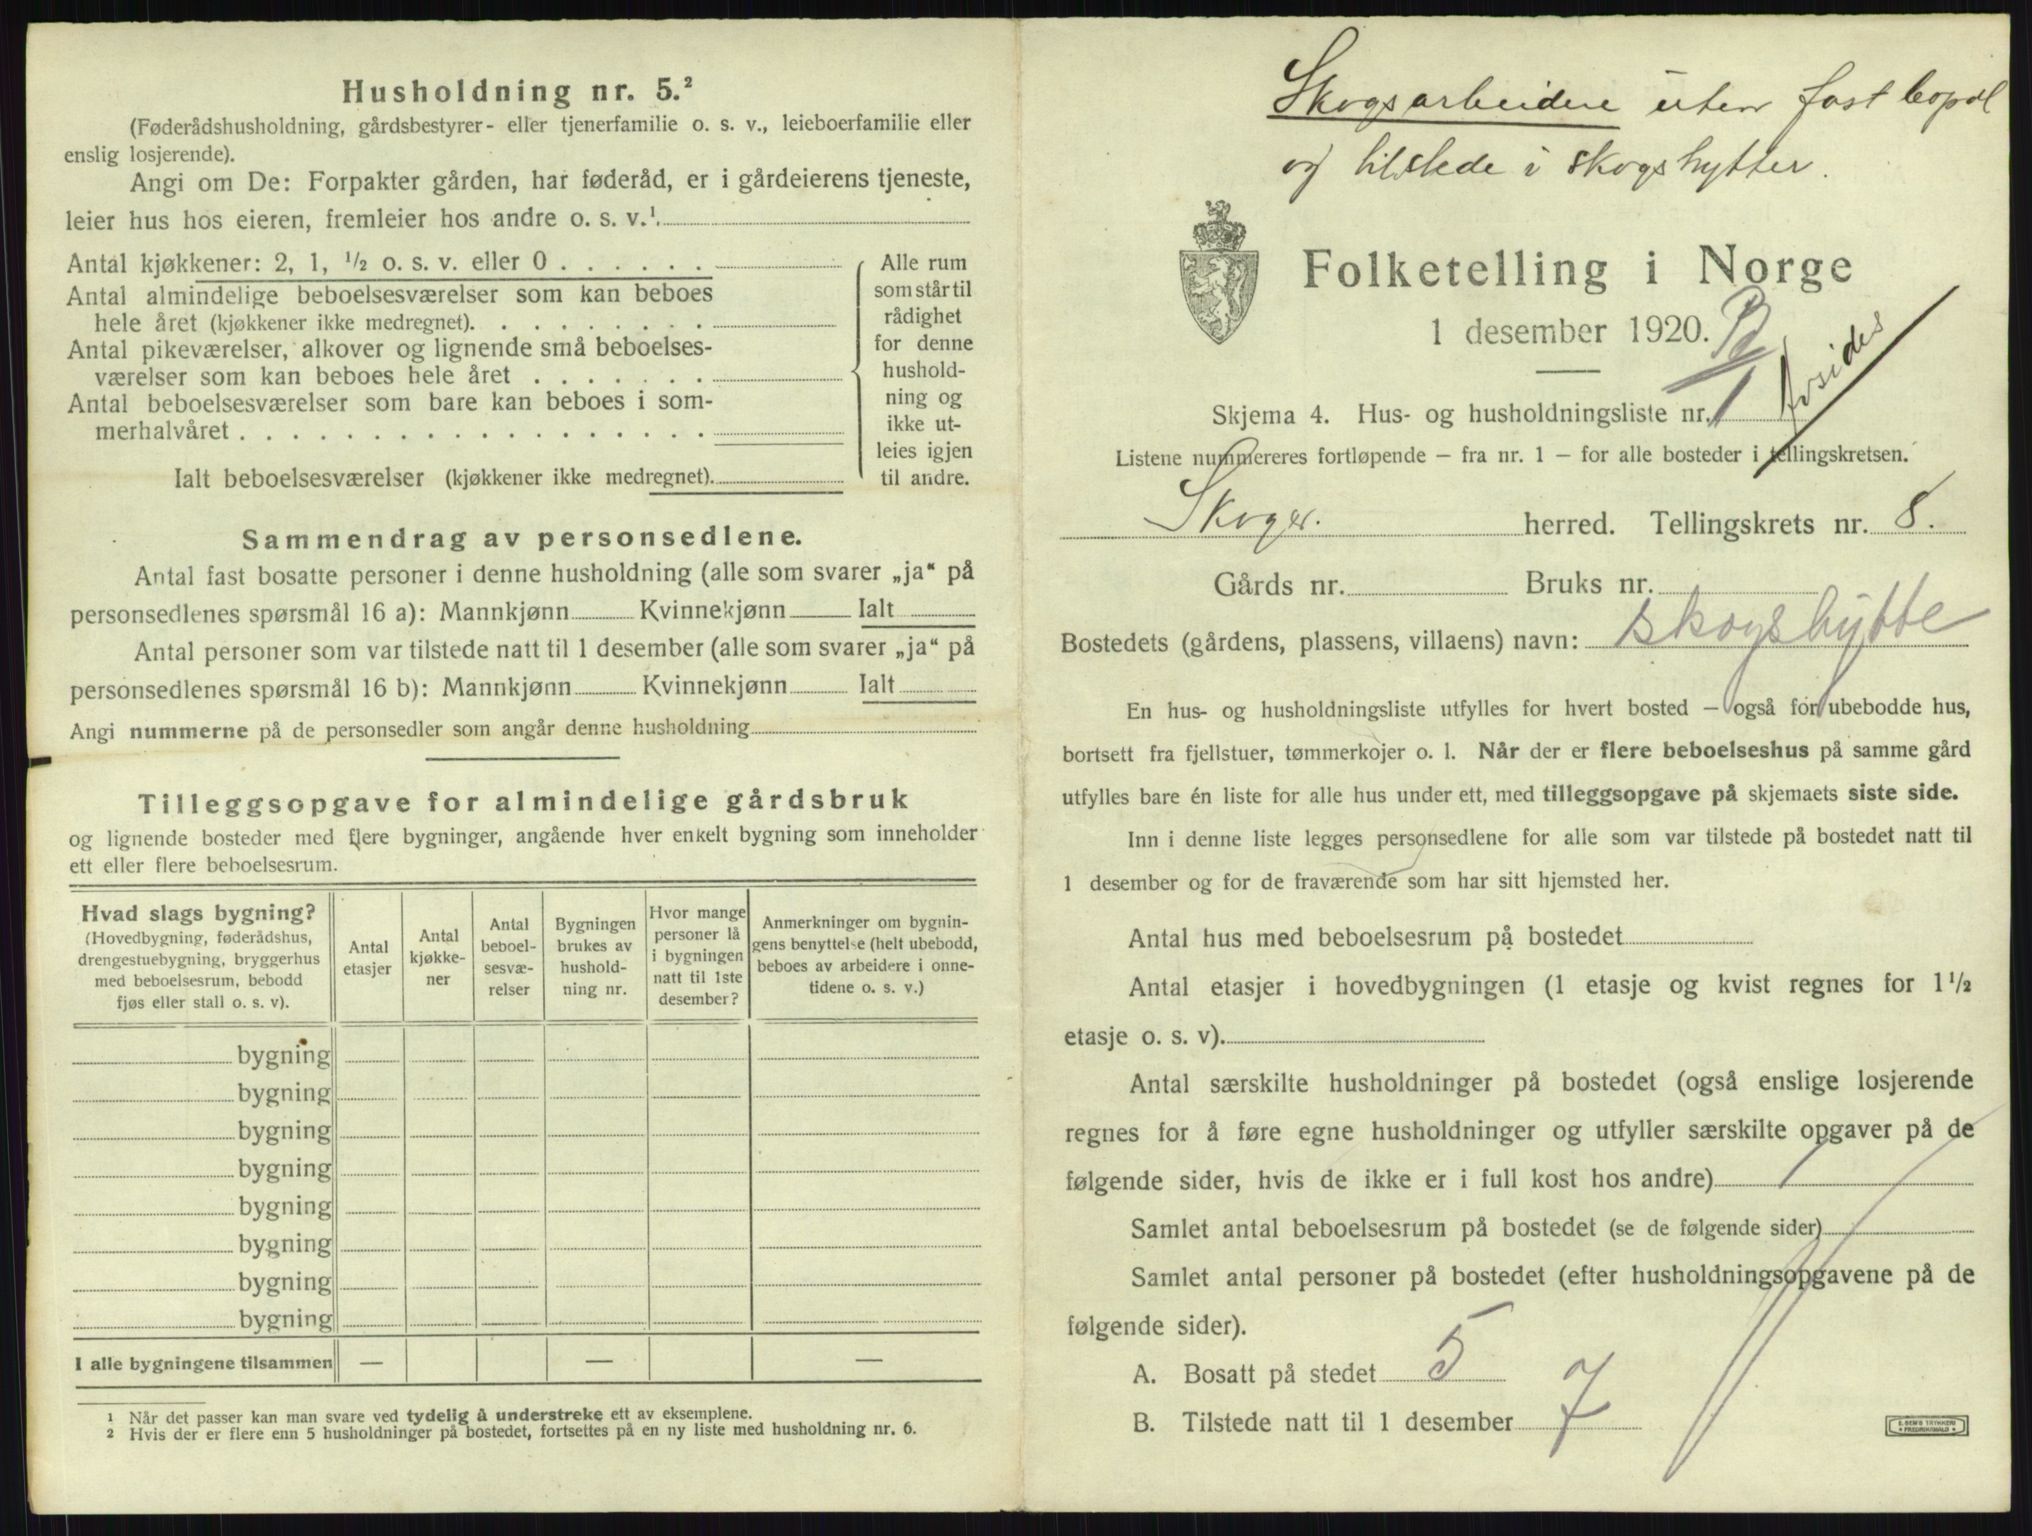 Husholdning nr. 5.²
(Føderådshusholdning, gårdsbestyrer- eller tjenerfamilie o. s. v., leieboerfamilie eller
enslig losjerende).
Angi om De: Forpakter gården, har føderåd, er i gårdeierens tjeneste,
leier hus hos eieren, fremleier hos andre o. s. v.¹.
Antal kjøkkener: 2, 1, ½ o. s. v. eller 0 . . . . . .
Antal almindelige beboelsesværelser som kan beboes
hele året (kjøkkener ikke medregnet). . . . . . . . .
Antal pikeværelser, alkover og lignende små beboelses-
værelser som kan beboes hele året . . . . . . .
Antal beboelsesværelser som bare kan beboes i som-
merhalvåret . . . . . . . . . . . . . . . . . .
Ialt beboelsesværelser (kjøkkener ikke medregnet).
Alle rum
som står til
rådighet
for denne
hushold-
ning og
ikke ut-
leies igjen
til andre.
Sammendrag av personsedlene.
Antal fast bosatte personer i denne husholdning (alle som svarer „ja“ på
personsedlenes spørsmål 16 a): Mannkjønn Kvinnekjønn Ialt
Antal personer som var tilstede natt til 1 desember (alle som svarer „ja“ på
personsedlenes spørsmål 16 b): Mannkjønn Kvinnekjønn Ialt
Angi nummerne på de personsedler som angår denne husholdning
Tilleggsopgave for almindelige gårdsbruk
og lignende bosteder med flere bygninger, angående hver enkelt bygning som inneholder
ett eller flere beboelsesrum.
Hvad slags bygning?
(Hovedbygning, føderådshus,
drengestuebygning, bryggerhus
med beboelsesrum, bebodd
fjøs eller stall o. s. v).
Antal
etasjer
Antal
kjøkke-
ner
Antal
beboel-
sesvæ-
relser
Bygningen
brukes av
hushold-
ning nr.
Hvor mange
personer lå
i bygningen
natt til 1ste
desember?
Anmerkninger om bygnin-
gens benyttelse (helt ubebodd,
beboes av arbeidere i onne-
tidene o. s. v.)
bygning
bygning
bygning
bygning
bygning
bygning
bygning
bygning
I alle bygningene tilsammen — — —
¹ Når det passer kan man svare ved tydelig å understreke ett av eksemplene.
² Hvis der er flere enn 5 husholdninger på bostedet, fortsettes på en ny liste med husholdning nr. 6.
Skogsarbeidere uten fast bopæl
og tilstede i skogshytter.
Folketelling i Norge
1 desember 1920.
Skjema 4. Hus- og husholdningsliste nr. 1
Listene nummereres fortløpende – fra nr. 1 – for alle bosteder i tellingskretsen.
Skoger. herred. Tellingskrets nr. 8.
Gårds nr. Bruks nr.
Bostedets (gårdens, plassens, villaens) navn: skogshytte
En hus- og husholdningsliste utfylles for hvert bosted – også for ubebodde hus,
bortsett fra fjellstuer, tømmerkojer o. l. Når der er flere beboelseshus på samme gård
utfylles bare én liste for alle hus under ett, med tilleggsopgave på skjemaets siste side.
Inn i denne liste legges personsedlene for alle som var tilstede på bostedet natt til
1 desember og for de fraværende som har sitt hjemsted her.
Antal hus med beboelsesrum på bostedet
Antal etasjer i hovedbygningen (1 etasje og kvist regnes for 1½
etasje o. s. v).
Antal særskilte husholdninger på bostedet (også enslige losjerende
regnes for å føre egne husholdninger og utfyller særskilte opgaver på de
følgende sider, hvis de ikke er i full kost hos andre) 1
Samlet antal beboelsesrum på bostedet (se de følgende sider)
Samlet antal personer på bostedet (efter husholdningsopgavene på de
følgende sider).
A. Bosatt på stedet 5
B. Tilstede natt til 1 desember 7
E. SEM'S TRYKKERI
FREDRIKSHALD